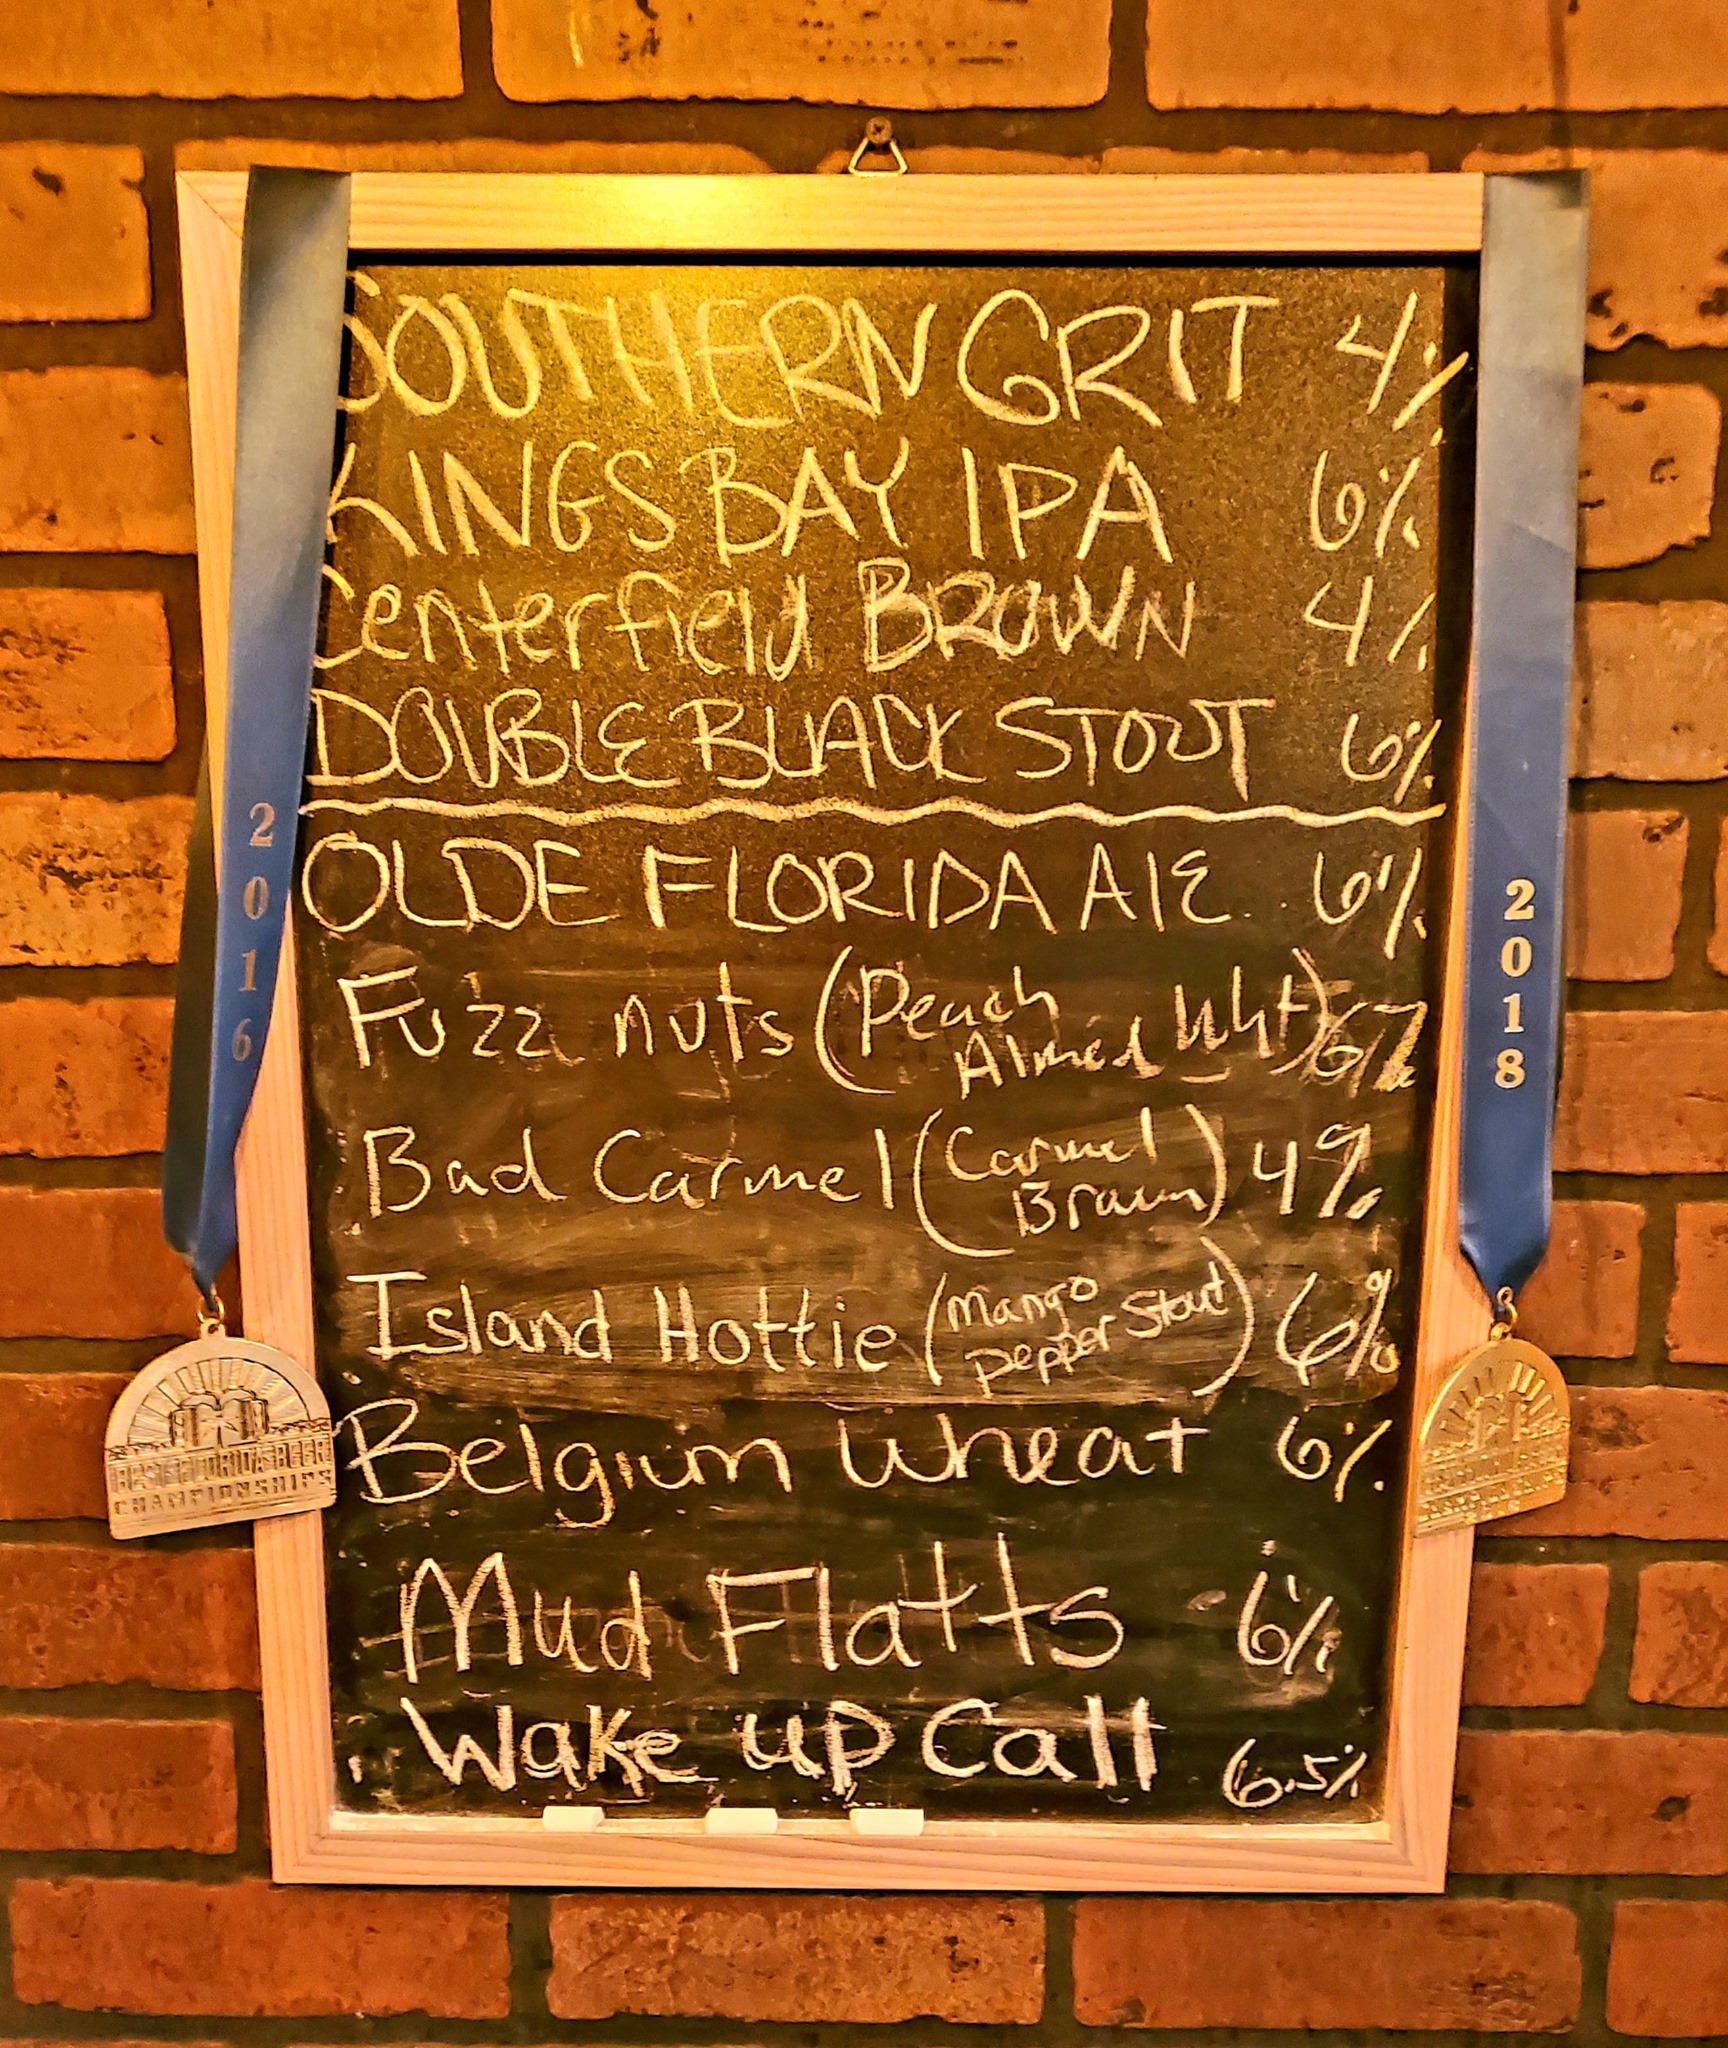 SOUTHERN GRIT 4%
KINGS BAY IPA 6%
Centerfield BROWN 4%
DOUBLE BLACK STOUT 6%
OLDE FLORIDA ALE 6%
Fuzz nuts (Peach Almond Wht) 6%
Bad Carmel (Carmel Brown) 4%
Island Hottie (Mango pepper Stout) 6%
Belgium Wheat 6%
Mud Flatts 6%
Wake up Call 6.5%
2016
2018
BEST FLORIDA BEER
CHAMPIONSHIPS